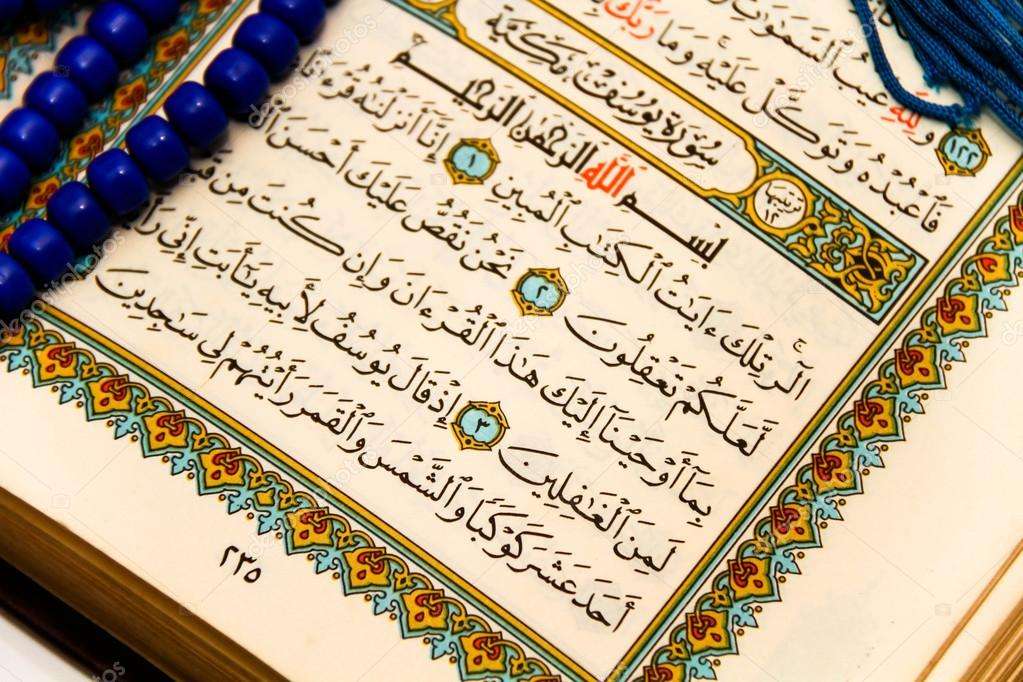 عيب السموات
ولله
فاعبده وتوكل عليه وما ربك
١٢٢
سورة يوسف مكية
بسم الله الرحمن الرحيم
الٓر تِلْكَ ءَايَٰتُ ٱلْكِتَٰبِ ٱلْمُبِينِ ١ إِنَّآ أَنزَلْنَٰهُ قُرْءَٰ
لَّعَلَّكُمْ تَعْقِلُونَ ٢ نَحْنُ نَقُصُّ عَلَيْكَ أَحْسَنَ
بِمَآ أَوْحَيْنَآ إِلَيْكَ هَٰذَا ٱلْقُرْءَانَ وَإِن كُنتَ مِن
لَمِنَ ٱلْغَٰفِلِينَ ٣ إِذْ قَالَ يُوسُفُ لِأَبِيهِ يَٰٓأَبَتِ إِنِّى
أَحَدَ عَشَرَ كَوْكَبًا وَٱلشَّمْسَ وَٱلْقَمَرَ رَأَيْتُهُمْ لِى سَٰجِدِينَ
٢٣٥